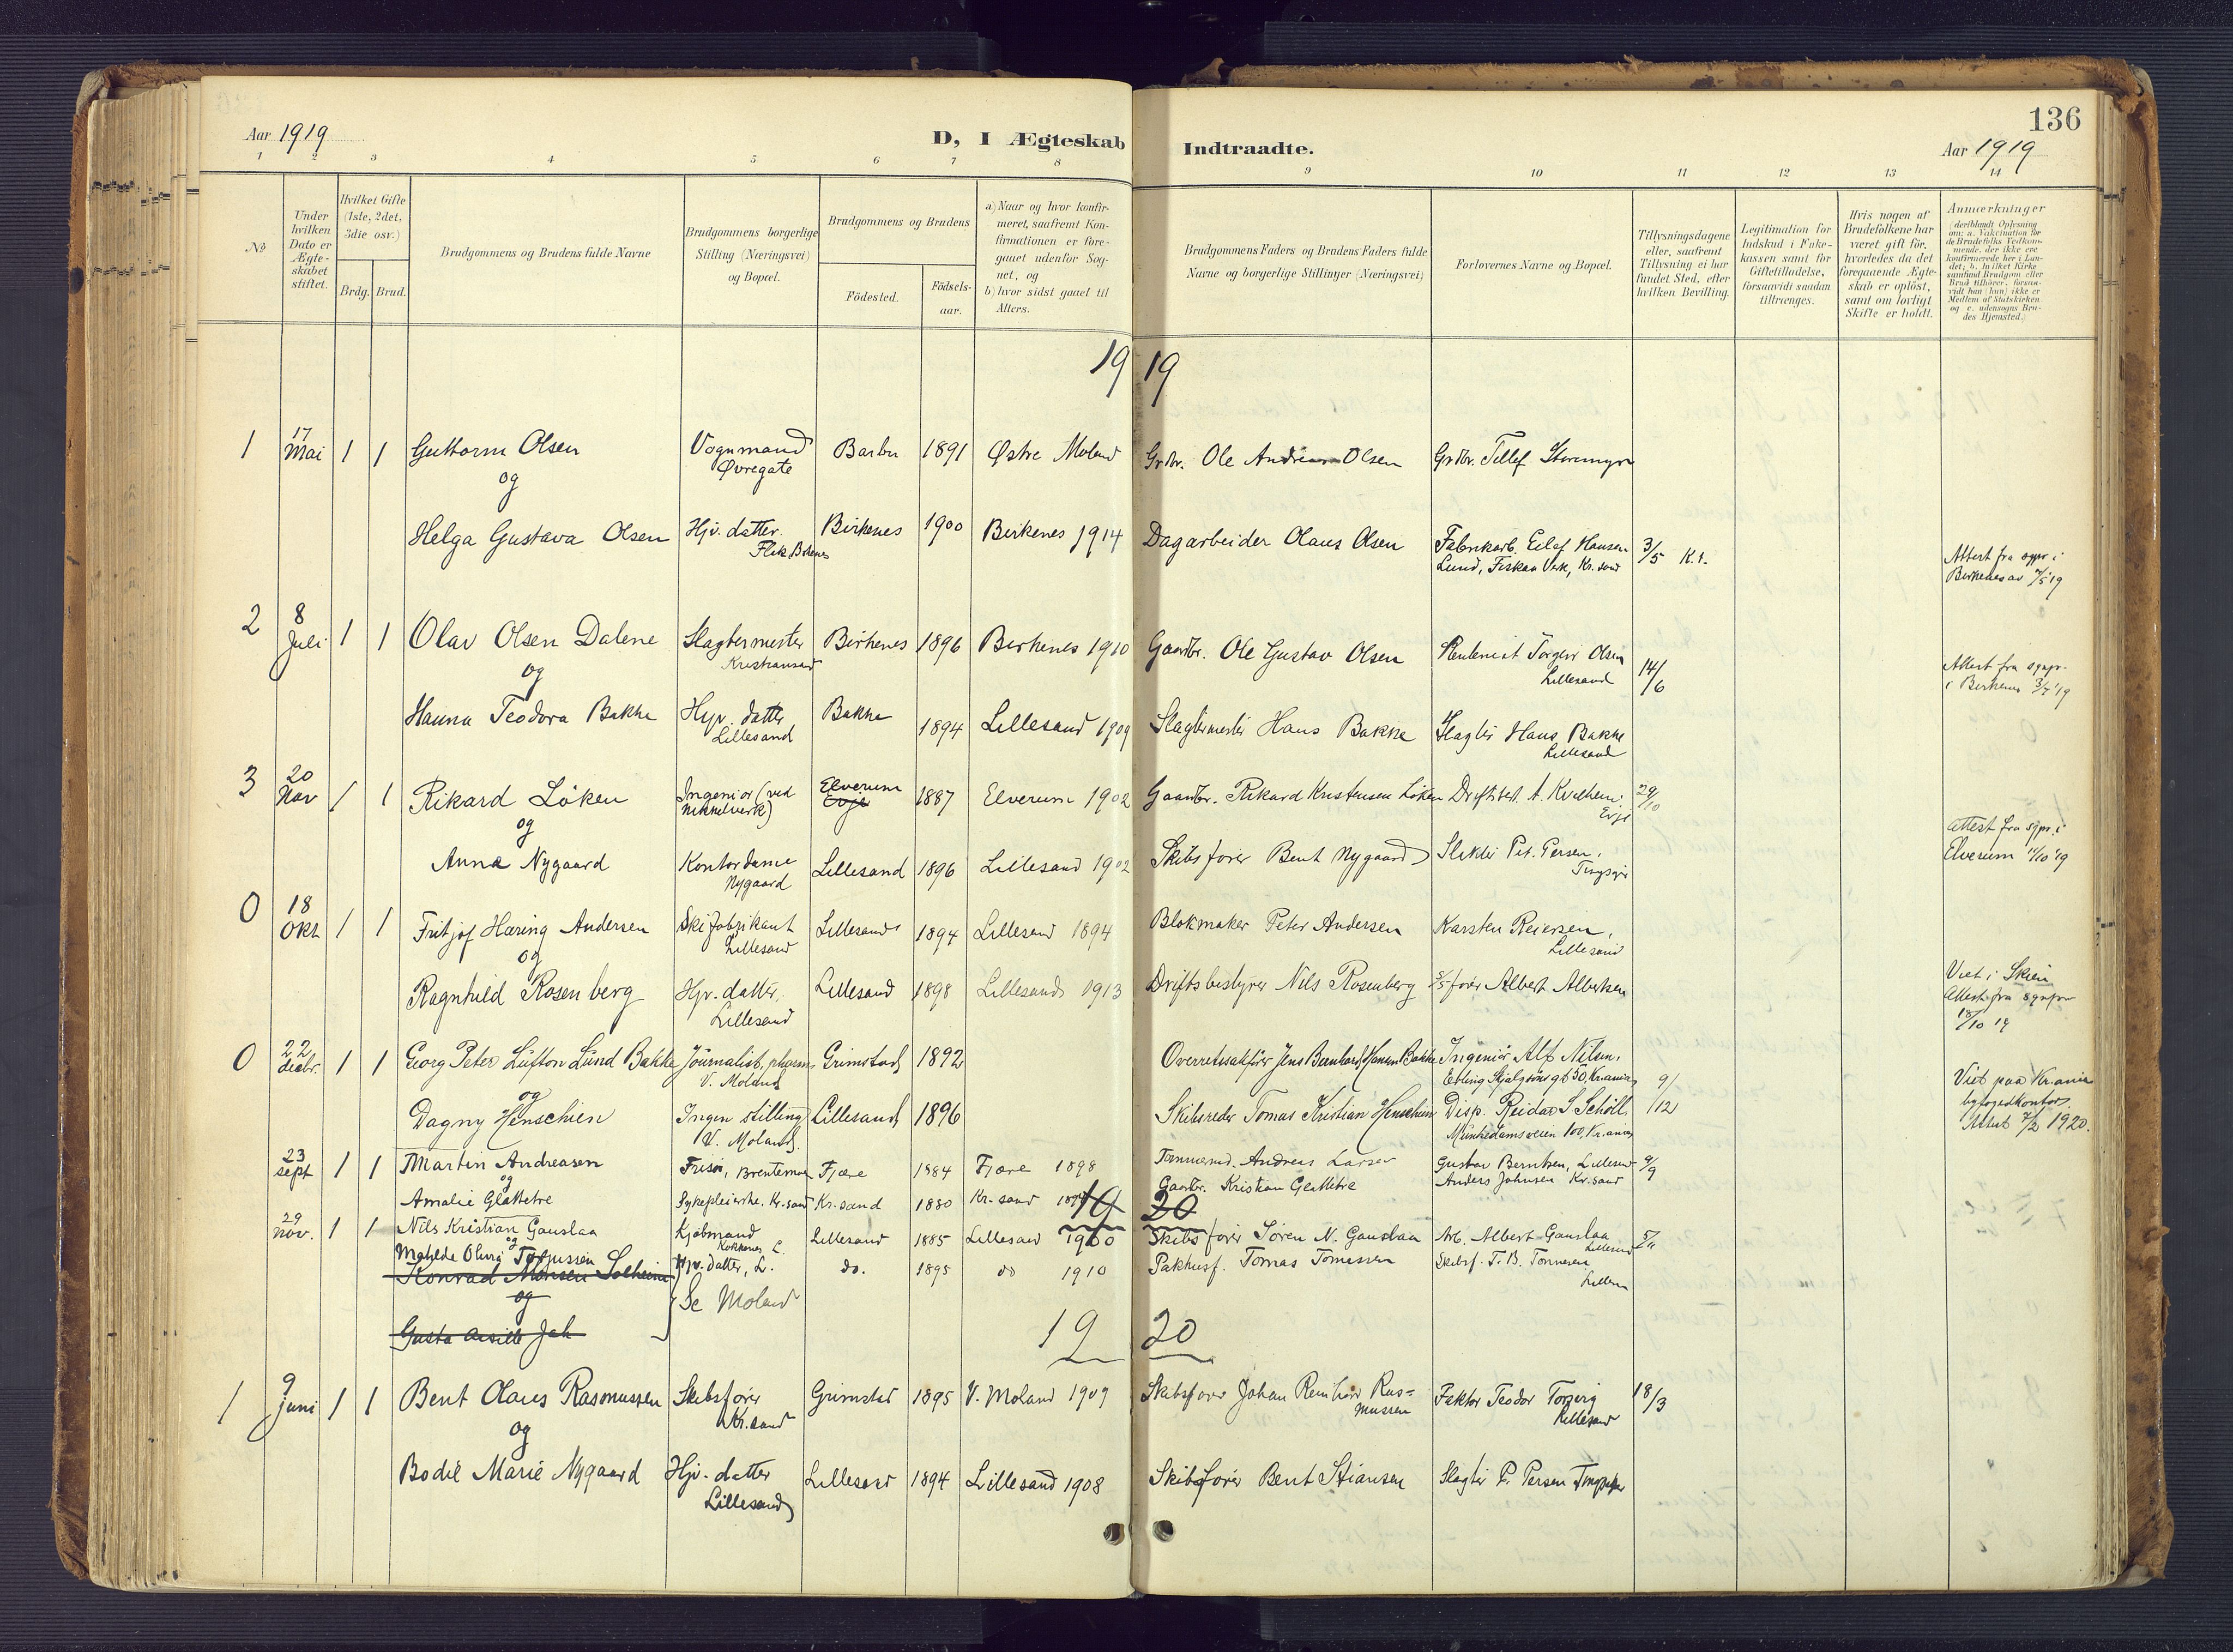 136
Aar 1919
D, I Ægteskab
Indtraadte.
Aar 1919
1 2 3 4 5 6 7 8 9 10 11 12 13 14
No
Under hvilken Dato er Ægteskabet stiftet.
Hvilket Gifte (1ste, 2det, 3die osv.)
Brdg. Brud.
Brudgommens og Brudens fulde Navne
Brudgommens borgerlige Stilling (Næringsvei) og Bopæl.
Brudgommens og Brudens
Födested.
Födselsaar.
a) Naar og hvor konfirmeret, saafremt Konfirmationen er foregaaet udenfor Sognet, og
b) hvor sidst gaaet til Alters.
Brudgommens Faders og Brudens Faders fulde Navne og borgerlige Stillinger (Næringsvei)
Forlovernes Navne og Bopæl.
Tillysningsdagene eller, saafremt Tillysning ei har fundet Sted, efter hvilken Bevilling.
Legitimation for Indskud i Enkekassen samt for Giftetilladelse, forsaavidt saadan tiltrænges.
Hvis nogen af Brudefolkene har været gift før, hvorledes da det foregaaende Ægteskab er opløst, samt om lovligt Skifte er holdt.
Anmerkninger (deriblandt Oplysning om: a. Vakcination for de Brudefolks Vedkommende, der ikke ere konfirmerede her i Landet; b. hvilket Kirkesamfund Brudgom eller Brud tilhører, forsaavidt han (hun) ikke er Medlem af Statskirken og c. udensogns Brudes Hjemsted.)
19 19
1 17 Mai 1 1 Guttorm Olsen Vognmand Øvregate Barbu 1891 Østre Moland Grdbr. Ole Andreas Olsen Grdbr. Tellef Storemyr
og
Helga Gustava Olsen Hjv. datter Birkenes 1900 Birkenes 1914 Dagarbeider Olaus Olsen Fabrikarb. Eilef Hansen Lund, Fiskaa Verk, Kr.sand 3/5 K.t. Attest fra sgpr. i Birkenes av
2 8 Juli 1 1 Olav Olsen Dalene Slagtermester Kristiansand Birkenes 1896 Birkenes 1910 Gaardbr. Ole Gustav Olsen Olsen Lillesand 14/6 Attest fra sgnpr. i Birkenes 3/7 19
og
Hanna Teodora Bakke Hjv. datter Lillesand Bakke 1894 Lillesand 1909 Slagtermester Hans Bakke Slagter Hans Bakke Lillesand
3 20 Nov 1 1 Rikard Löken Ingeniør (ved Nikkelverk) Elverum Evje 1887 Elverum 1902 Gaardbr. Rikard Kristensen Löken Driftsbest. A. Kvelheim Evje 29/10
og
Anna Nygaard Kontordame Nygaard Lillesand 1896 Lillesand 1902 Skibsfører Bent Nygaard Pet. Persen, Attest fra sgpr. i Elverum
0 18 Okt 1 1 Fritjof Hæring Andersen Skifabrikant Lillesand Lillesand 1894 Lillesand 1894 Blokmaker Peter Andersen Karsten Reiersen, Lillesand
og
Ragnhild Rosenberg Hjv. datter, Lillesand Lillesand 1898 Lillesand 1913 Driftsbestyrer Nils Rosenberg S/fører Albert Albertsen Viet i Skien Attest fra sgnpr 18/10 19
0 22 decbr. 1 1 Georg Peter Lüfton Lünd Bakke Journalist, V. Moland Grimstad 1892 Overretssakfører Jens Bernhard Hansen Bakke Ingeniør Alf Nilsen, Erling Skjalgsöns gt 50, Kr.ania 9/12 Viet paa Kr.ania byfogedkontor. Attest 7/2 1920.
og
Dagny Henschien Ingen stilling V. Moland. Lillesand 1896 Skibsreder Tomas Kristian Henschien Disp. Reidar S. Schöll Münkedamsveien 100, Kr.ania
23 sept 1 1 Martin Andreasen Frisør, Brentemoe Fjære 1884 Fjære 1898 Andreas Larsen Gustav Berntsen, Lillesand 9/9
og
Amalie Glattetre Sykepleierske. Kr.sand Kr.sand 1880 Kr.sand Gaardbr. Kristian Glattetre Anders Johnsen Kr.sand
19 20
29 nov. 1 1 Nils Kristian Gauslaa Kjøbmand Kokkenes L. Lillesand 1885 Lillesand 1900 Skibsfører Søren N. Gauslaa Arb. Albert Gauslaa Lillesand 5/11
og
Matilde Olivia Torjussen Hjv. datter, L. do. 1895 do 1910 Pakhusf. Tomas Tomassen Skibsf. T. B. Tønnesen Lillesand
Konrad Monsen Solheim
og Se Moland
Gusta
19 20
1 9 juni 1 1 Bent Olaus Rasmussen Skibsfører Kr.sand Grimstad 1895 V. Moland 1909 Skibsfører Johan Reinhard Rasmussen Faktor Teodor Torjvig Lillesand 18/3
og
Bodil Marie Nygaard Hjv. datter Lillesand Lillesand 1894 Lillesand 1908 Skibsfører Bent Stiansen Slagter P. Persen